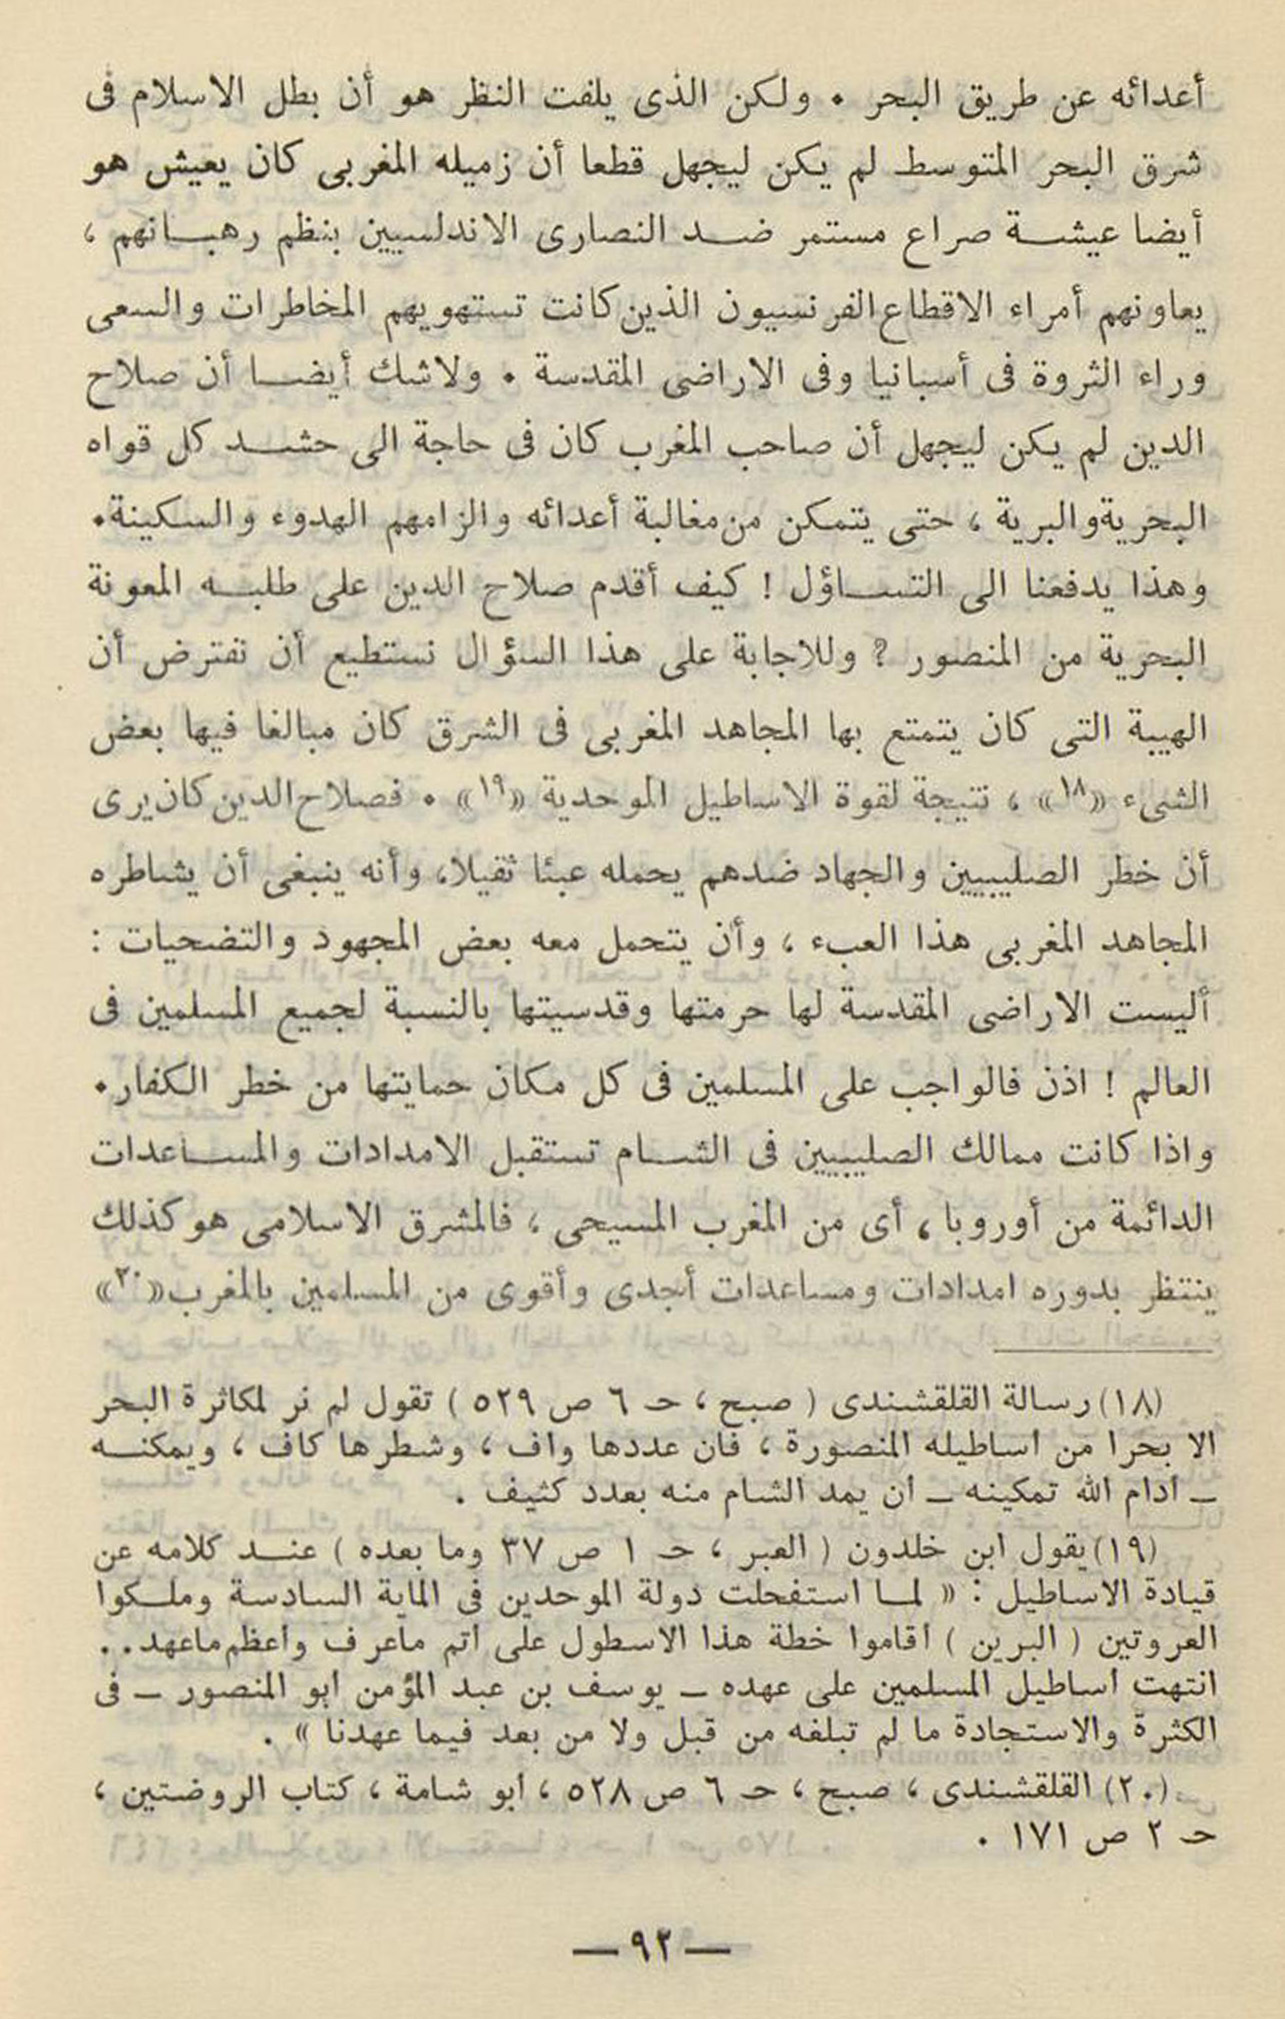 أعدائه عن طريق البحر ٠ ولكن الذى يلفت النظر هو أن بطل الاسلام فى
شرق البحر المتوسط لم يكن ليجهل قطعا أن زميله المغربى كان يعيش هو
أيضا عيشة صراع مستمر ضد النصارى الاندلسيين بنظم رهبانهم ،
يعاونهم أمراء الاقطاع الفرنسيون الذين كانت تستهويهم المخاطرات والسعى
وراء الثروة فى أسبانيا وفى الاراضى المقدسة ٠ ولاشك أيضا أن صلاح
الدين لم يكن ليجهل أن صاحب المغرب كان فى حاجة الى حشد كل قواه
البحرية والبرية ، حتى يتمكن من مغالبة أعدائه والزامهم الهدوء والسكينة٠
وهذا يدفعنا الى التساؤل ! كيف أقدم صلاح الدين على طلبه المعونة
البحرية من المنصور ؟ وللاجابة على هذا السؤال نستطيع أن تفترض أن
الهيبة التى كان يتمتع بها المجاهد المغربى فى الشرق كان مبالغا فيها بعض
الشىء «١٨» ، نتيجة لقوة الاساطيل الموحدية «١٩» ٠ فصلاح الدين كان يرى
أن خطر الصليبيين والجهاد ضدهم يحمله عبئا ثقيلا، وأنه ينبغى أن يشاطره
المجاهد المغربى هذا العبء ، وأن يتحمل معه بعض المجهود والتضحيات :
أليست الاراضى المقدسة لها حرمتها وقدسيتها بالنسبة لجميع المسلمين فى
العالم ! اذن فالواجب على المسلمين فى كل مكان حمايتها من خطر الكفار٠
واذا كانت ممالك الصليبيين فى الشام تستقبل الامدادات والمساعدات
الدائمة من أوروبا ، أى من المغرب المسيحى ، فالمشرق الاسلامى هو كذلك
ينتظر بدوره امدادات ومساعدات أجدى وأقوى من المسلمين بالمغرب«٢٠»
(١٨) رسالة القلقشندى ( صبح ، حـ ٦ ص ٥٢٩ ) تقول لم نر لمكاثرة البحر
الا بحرا من اساطيله المنصورة ، فان عددها واف ، وشطرها كاف ، ويمكنه
ــ ادام الله تمكينه ــ ان يمد الشام منه بعدد كثيف .
(١٩) يقول ابن خلدون ( العبر ، حـ ١ ص ٣٧ وما بعده ) عند كلامه عن
قيادة الاساطيل : « لما استفحلت دولة الموحدين فى الماية السادسة وملكوا
العروتين ( البرين ) اقاموا خطة هذا الاسطول على اتم ماعرف واعظم ماعهد..
انتهت اساطيل المسلمين على عهده ــ يوسف بن عبد المؤمن ابو المنصور ــ فى
الكثرة والاستجادة ما لم تبلغه من قبل ولا من بعد فيما عهدنا » .
(٢٠) القلقشندى ، صبح ، حـ ٦ ص ٥٢٨ ، ابو شامة ، كتاب الروضتين ،
حـ ٢ ص ١٧١ .
— ٩٢ —